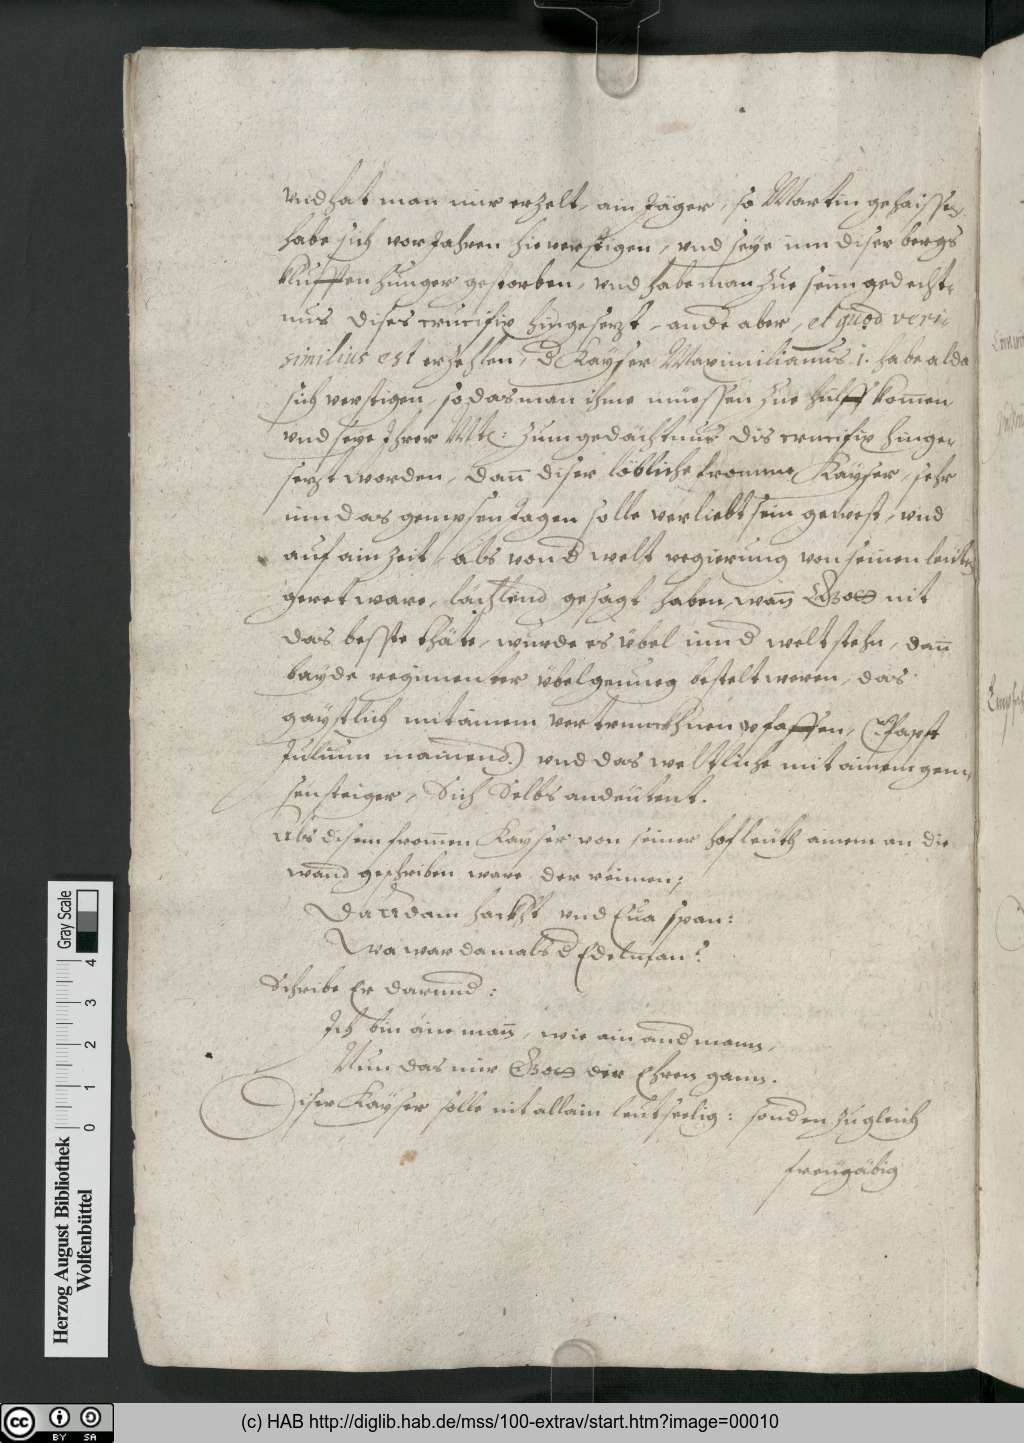 vnd hat man mir erzelt, ain Jäger, so Martin gehaissen
habe sich vor Jahren hie verstigen, vnd seye inn diser bergs
klufften hunger gestorben, vnd habe man zue seim gedecht=
nus dises crucifix hingesetzt, ande aber, et quod veri=
similius est erzehlen, d Kayser Maximilianus .1. habe alda
sich verstigen, so das man ihme müessen zue hülff komen
vnd seye Ihrer Mt: zum gedächtnus dis crucifix hinge=
setzt worden, dann diser löbliche fromme Kayser, sehr
inn das gempsen Jagen solle verliebt sein gewest, vnd
auf ain Zeit, als von d welt regierung von seinen leüten
geret ware, lächlend gesagt haben, wann Gott nit
das beste thäte, wurde es übel inn d welt stehn, dann
bayde regimenter übelgenueg bestelt weren, das
gaystlich mit ainem vertrunckhnen pfaffen, (Papst
Julium mainend.) vnd das weltliche mit ainem gem=
sensteiger, Sich Selbs andeütent.
Als disem fromen Kayser von seiner hofleüth ainem an die
wand geschriben ware der reimen;
Da Adam hackht vnd Eua span:
Wa war damals d Edelman?
Schribe Er darund:
Ich bin ain mann, wie ain and mann,
Nun das mir Gott der Ehren gann.
Diser Kayser solle nit allain leutseelig: sonden zugleich
freygäbig
Herzog August Bibliothek
Wolfenbüttel
Gray Scale
0 1 2 3 4
cc BY SA
(c) HAB http://diglib.hab.de/mss/100-extrav/start.htm?image=00010